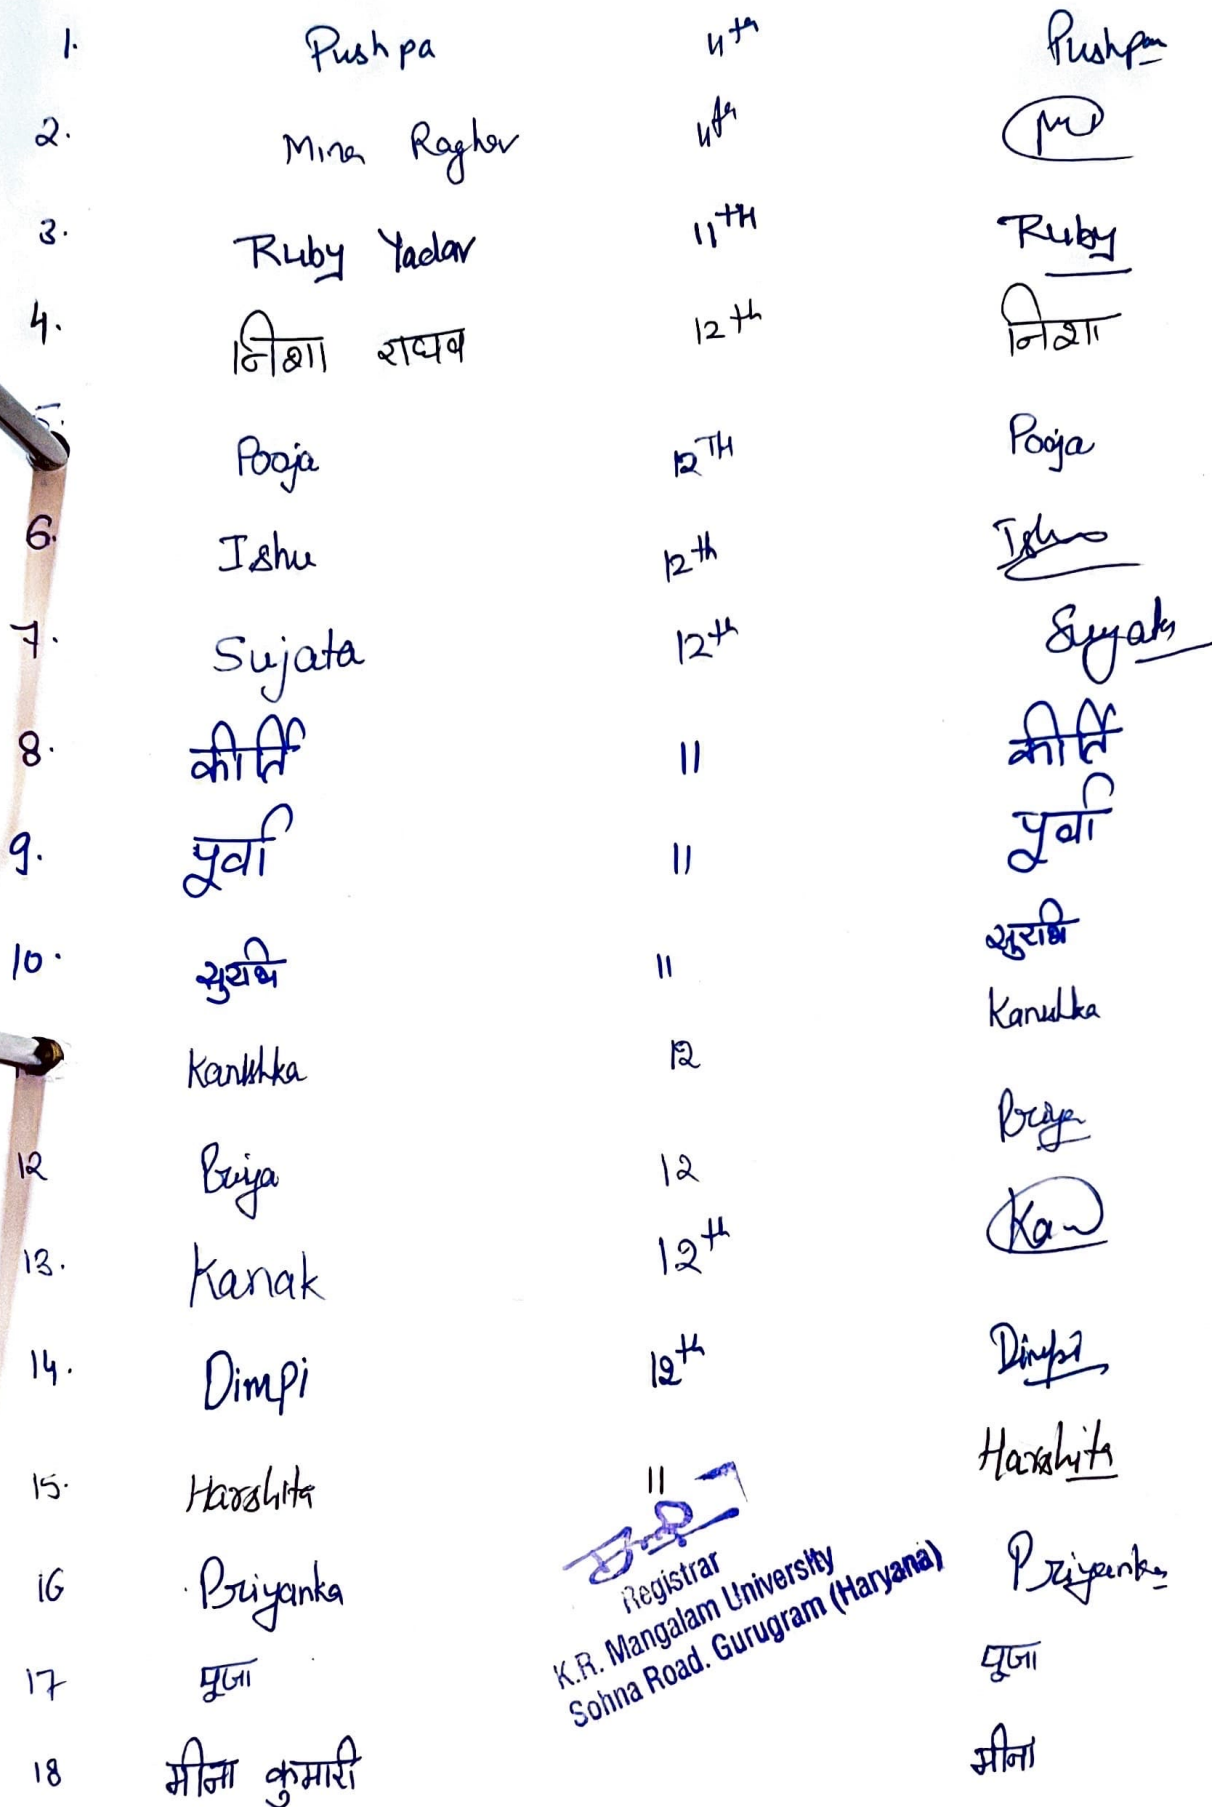 1. Pushpa 11th Pushpa
2. Mina Raghav 11th
3. Ruby Yadav 11TH Ruby
4. निशा राघव 12th निशा
5. Pooja 12TH Pooja
6. Ishu 12th Ishu
7. Sujata 12th Sujata
8. कीर्ति 11 कीर्ति
9. पूर्वा 11 पूर्वा
10. सुरभि 11 सुरभि
Kanishka 12 Kanishka
12 Priya 12 Priya
13. Kanak 12th Kan
14. Dimpi 12th Dimpi
15. Harshita 11 Harshita
16 Priyanka Priyanka
Registrar
K.R. Mangalam University
Sohna Road. Gurugram (Haryana)
17 पूजा पूजा
18 मीना कुमारी मीना